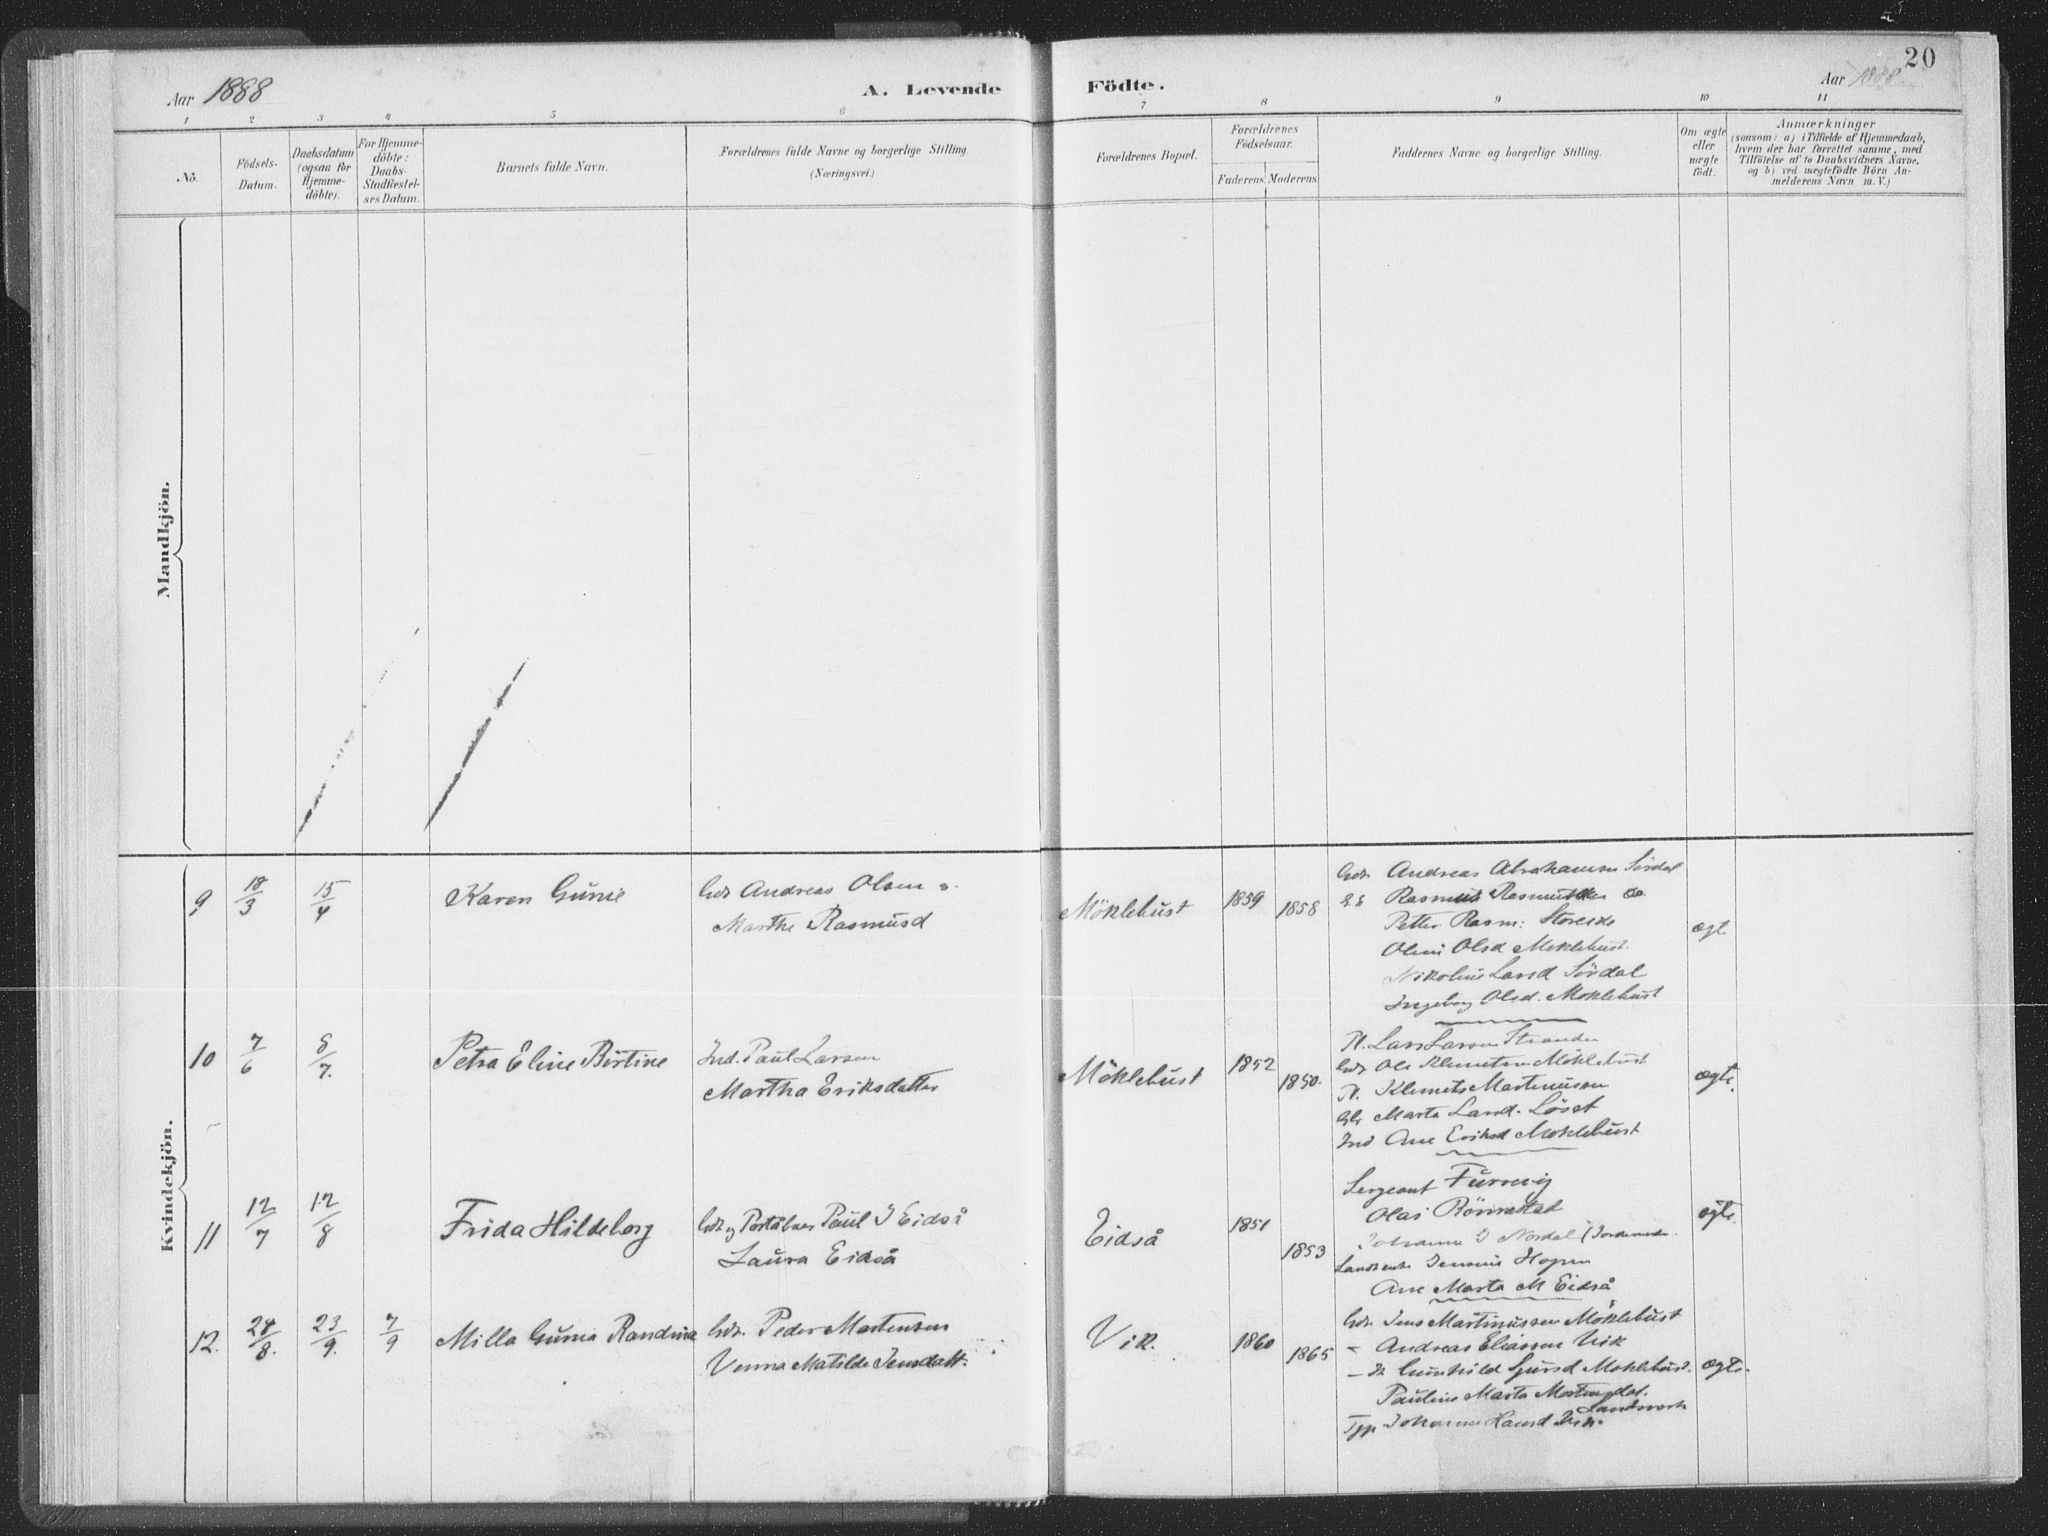 20
Aar 1888
A. Levende
Födte.
Aar 1888
1 2 3 4 5 6 7 8 9 10 11
No.
Födsels-
Datum.
Daabsdatum
(ogsaa for
Hjemme-
döbte).
For Hjemme-
döbte:
Daabs-
Stadfæstel-
ses Datum.
Barnets fulde Navn.
Forældrenes fulde Navne og borgerlige Stilling.
(Næringsvei.)
Forældrenes Bopæl.
Forældrenes
Födselsaar.
Faderens. Moderens.
Faddernes Navne og borgerlige Stilling.
Om ægte
eller
uægte
födt.
Anmærkninger
(saasom: a) i Tilfælde af Hjemmedaab,
hvem der har forrettet samme, med
Tilföielse af to Daabsvidners Navne,
og b) ved uægtefödte Börn An-
melderens Navn m. V.)
Mandkjön.
Kvindekjön.
9 18/3 15/4 Karen Gunie
Andreas Olsen
Marthe Rasmusd
Möklebust 1859 1858
Andreas Abrahamsen Sördal
Rasmus Rasmussen
Petter Rasm: Storeide
Olsd Moklebust
Larsd Sördal
Ingeborg Olsd. Moklebust
ægte
10 7/6 8/7. Petra Eline Birtine
Ind. Paul Larsen
Martha Eriksdatter
Möklebust 1852 1850.
Lars Larsen Strande
Ole Klemetsen Möklebust
Klemets Martinusen
Marta Larsd. Löset
Ind Ane Eriksd Moklebust
ægte.
11 12/7 12/8 Frida Hildeborg
Paul J Eidså
Laura Eidså
Eidså 1851 1853
Sergeant Furevig
Olai Rönnestad
Johanne J Nordal
Jensine Hopen
Ane Marta M Eidså
ægte.
12. 28/8. 23/9. 7/9 Milla Gunia Randina
Gdr. Peder Martensen
Venna Matilde Jensdatt.
Vik. 1860 1865
Gdr. Jens Martinussen Möklebust
— Andreas Eliassen Vik
— Gunhild Moklebust.
Pauline Marta
Johanne Hansd
ægte.